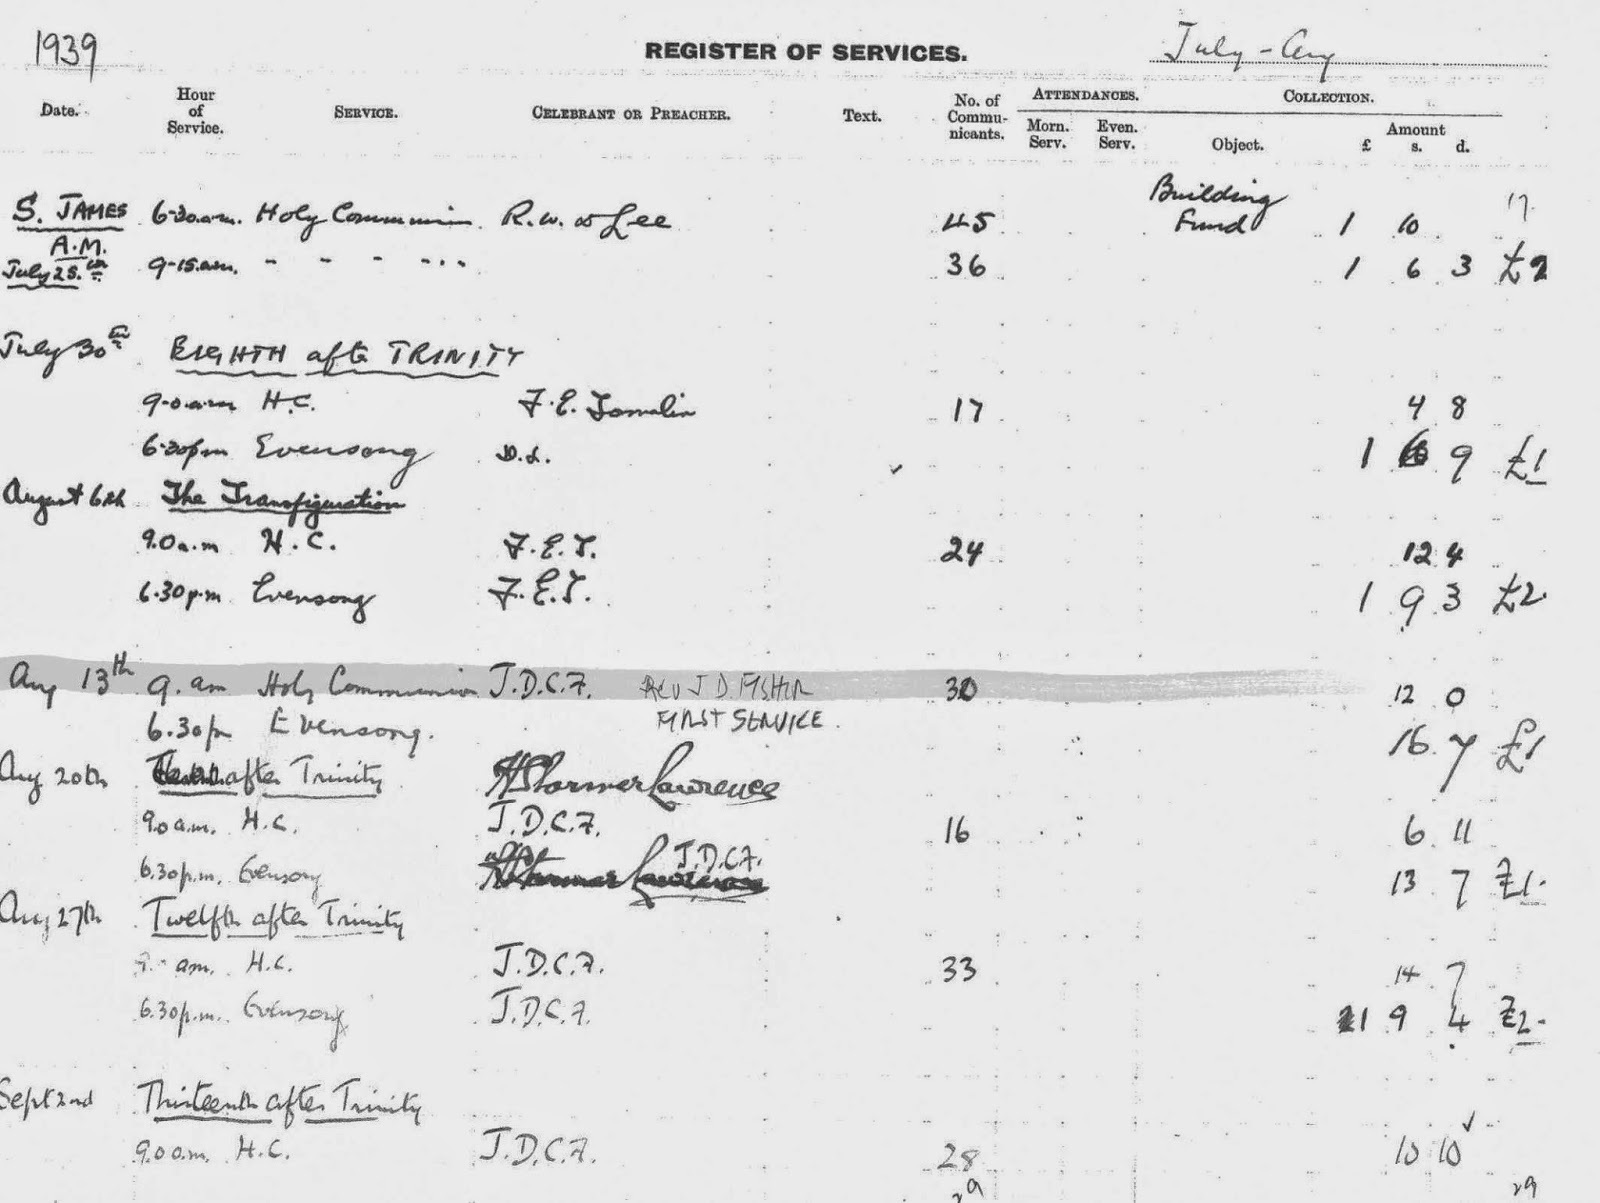 1939 REGISTER OF SERVICES. July - Aug
Date. Hour of Service. SERVICE. CELEBRANT OR PREACHER. Text. No. of Communicants. ATTENDANCES. Morn. Serv. Even. Serv. COLLECTION. Object. Amount £ s. d.
S. JAMES 6-30a.m. Holy Communion R.W. Lee 45 Building Fund 1 10 17
A.M.
July 25.th 9-15a.m. - - - - . . 36 1 6 3 £2
July 30th EIGHTH after TRINITY
9-0a.m H.C. F.E. Tomalin 17 4 8
6-30pm Evensong D.L. 1 6 9 £1
August 6th The Transfiguration
9.0a.m H.C. F.E.T. 24 12 4
6.30p.m Evensong F.E.T. 1 9 3 £2
Aug 13th 9.am Holy Communion J.D.C.F. REV J D FISHER 30 12 0
6.30p Evensong. FIRST SERVICE. 16 7 £1
Aug 20th after Trinity H Stormer Lawrence
9.0a.m. H.C. J.D.C.F. 16 6 11
6.30p.m. Evensong J.D.C.F. 13 7 £1-
Aug 27th Twelfth after Trinity
am. H.C. J.D.C.F. 33 14 7
6.30p.m. Evensong J.D.C.F. 1 9 4 £2-
Sept 2nd Thirteenth after Trinity
9.0a.m. H.C. J.D.C.F. 28 10 10
29 29